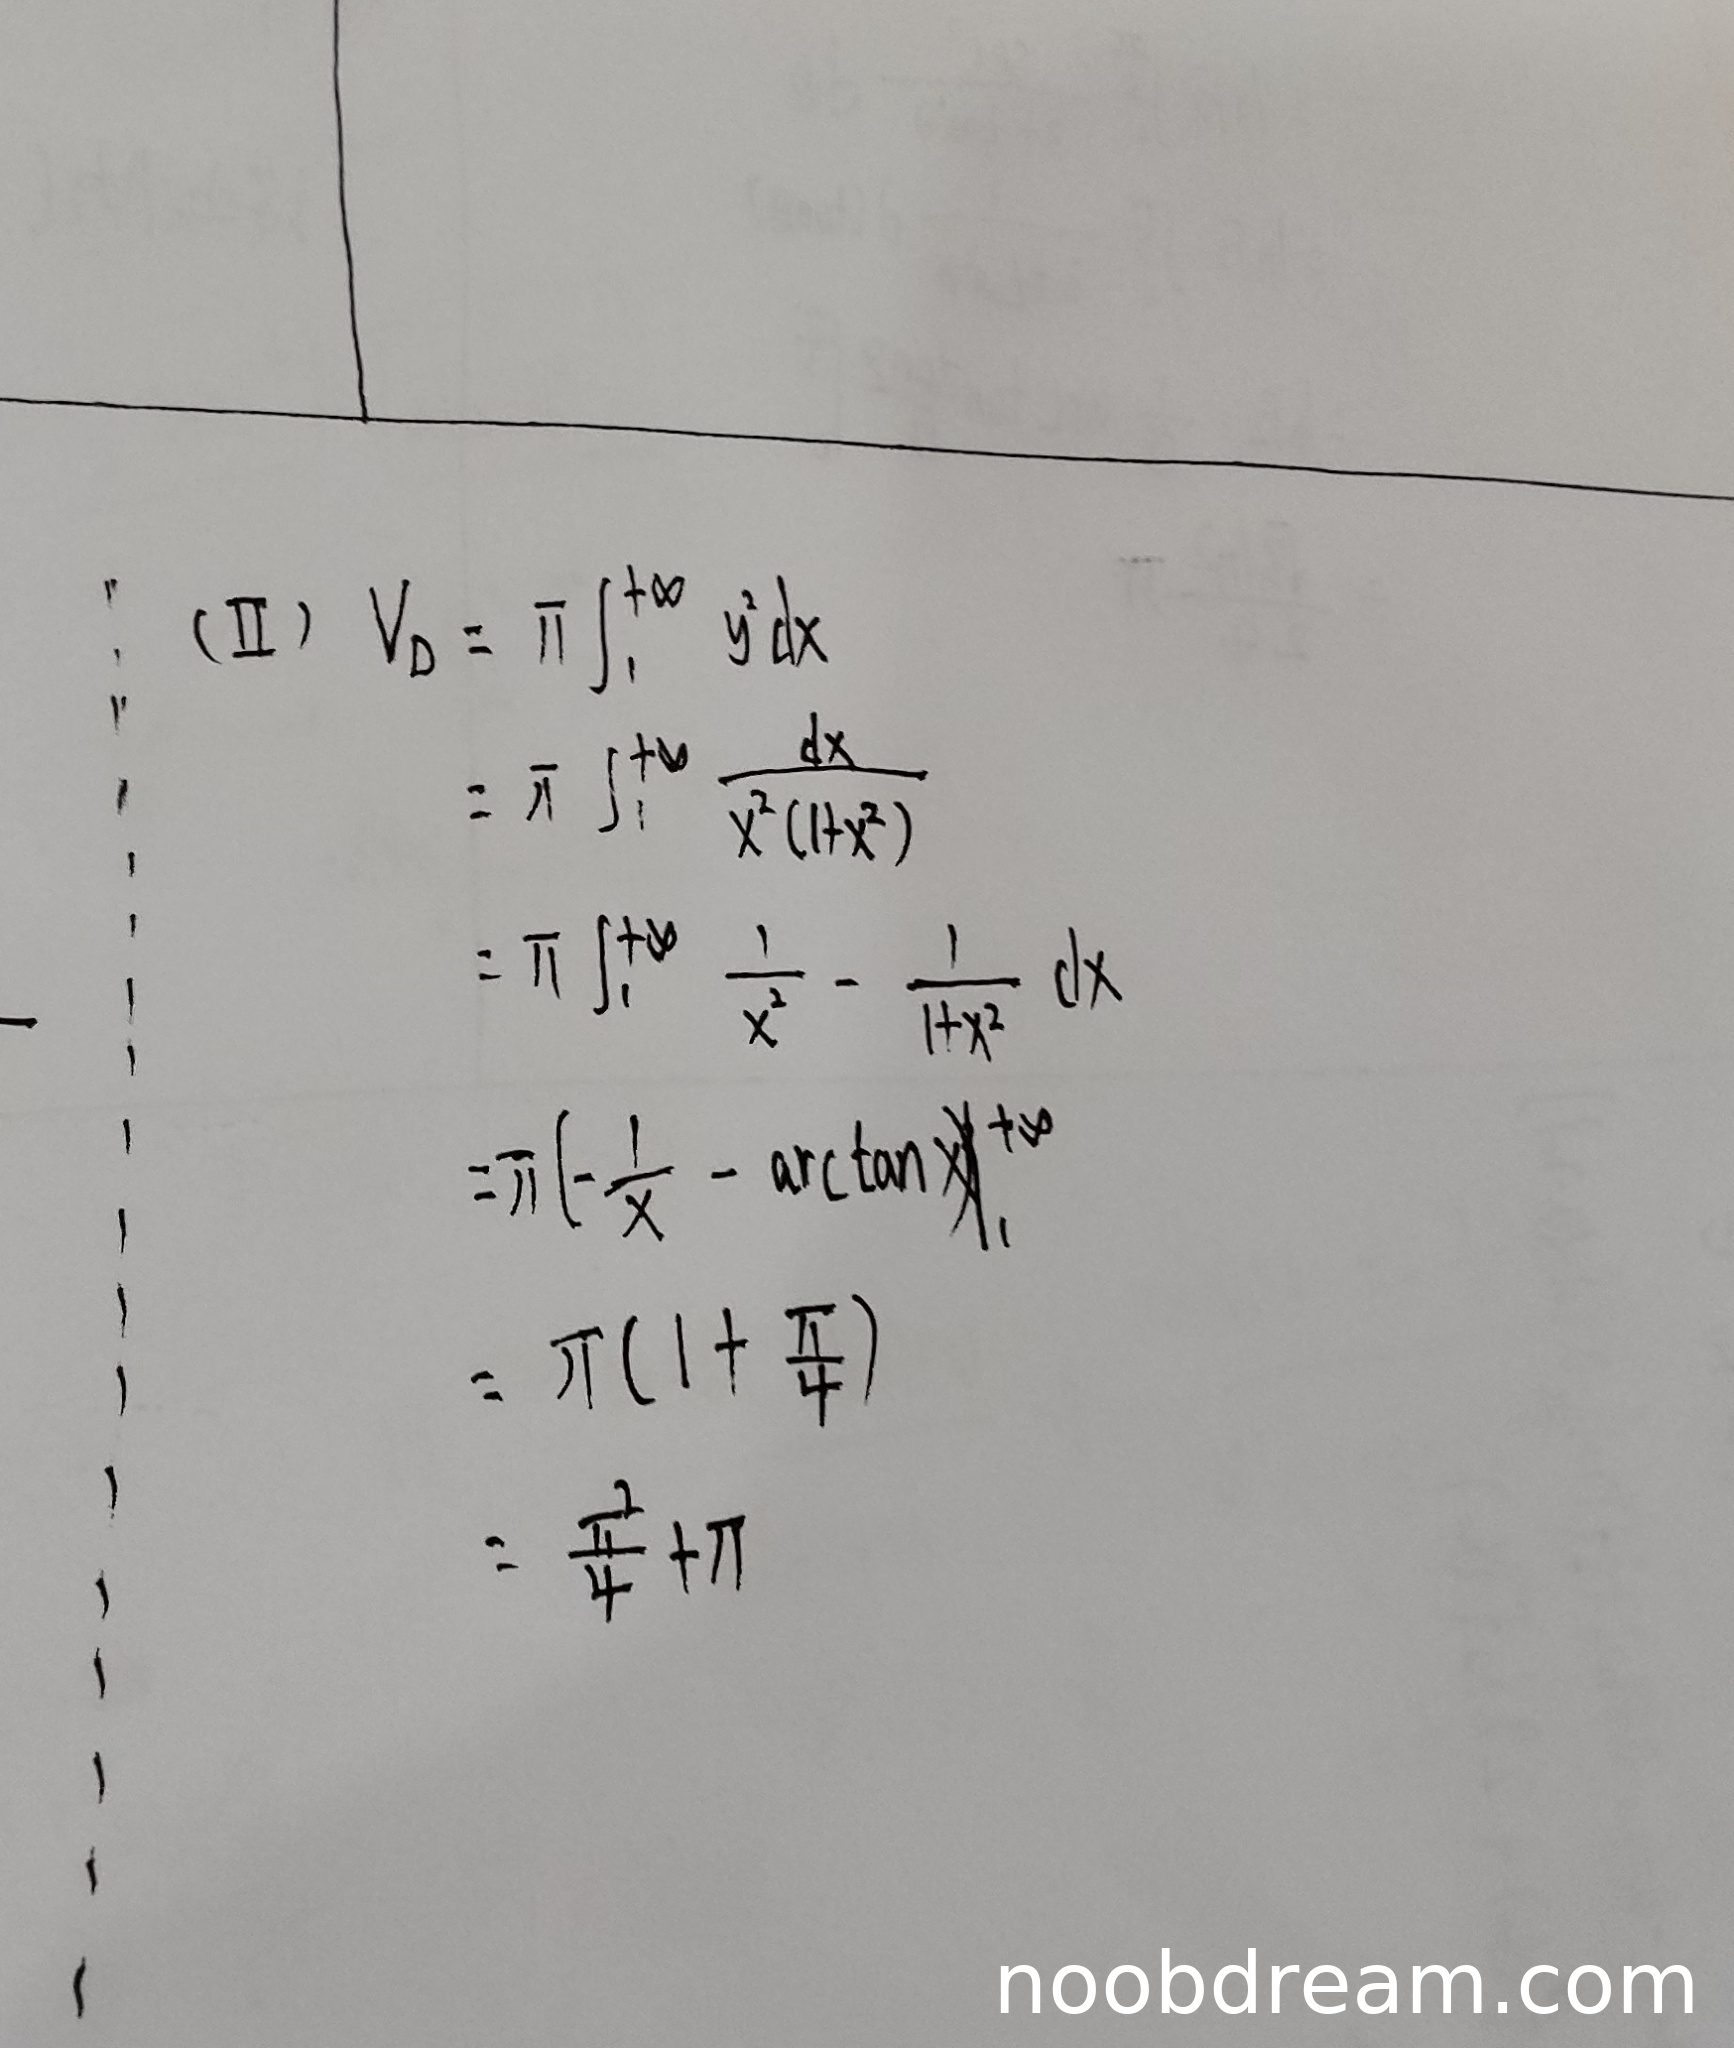 (II) V_D = π∫₁^{+∞} y²dx
= π ∫₁^{+∞} dx / x²(1+x²)
= π ∫₁^{+∞} 1/x² - 1/(1+x²) dx
= π(-1/x - arctan x)|₁^{+∞}
= π(1 + π/4)
= π²/4 + π
noobdream.com